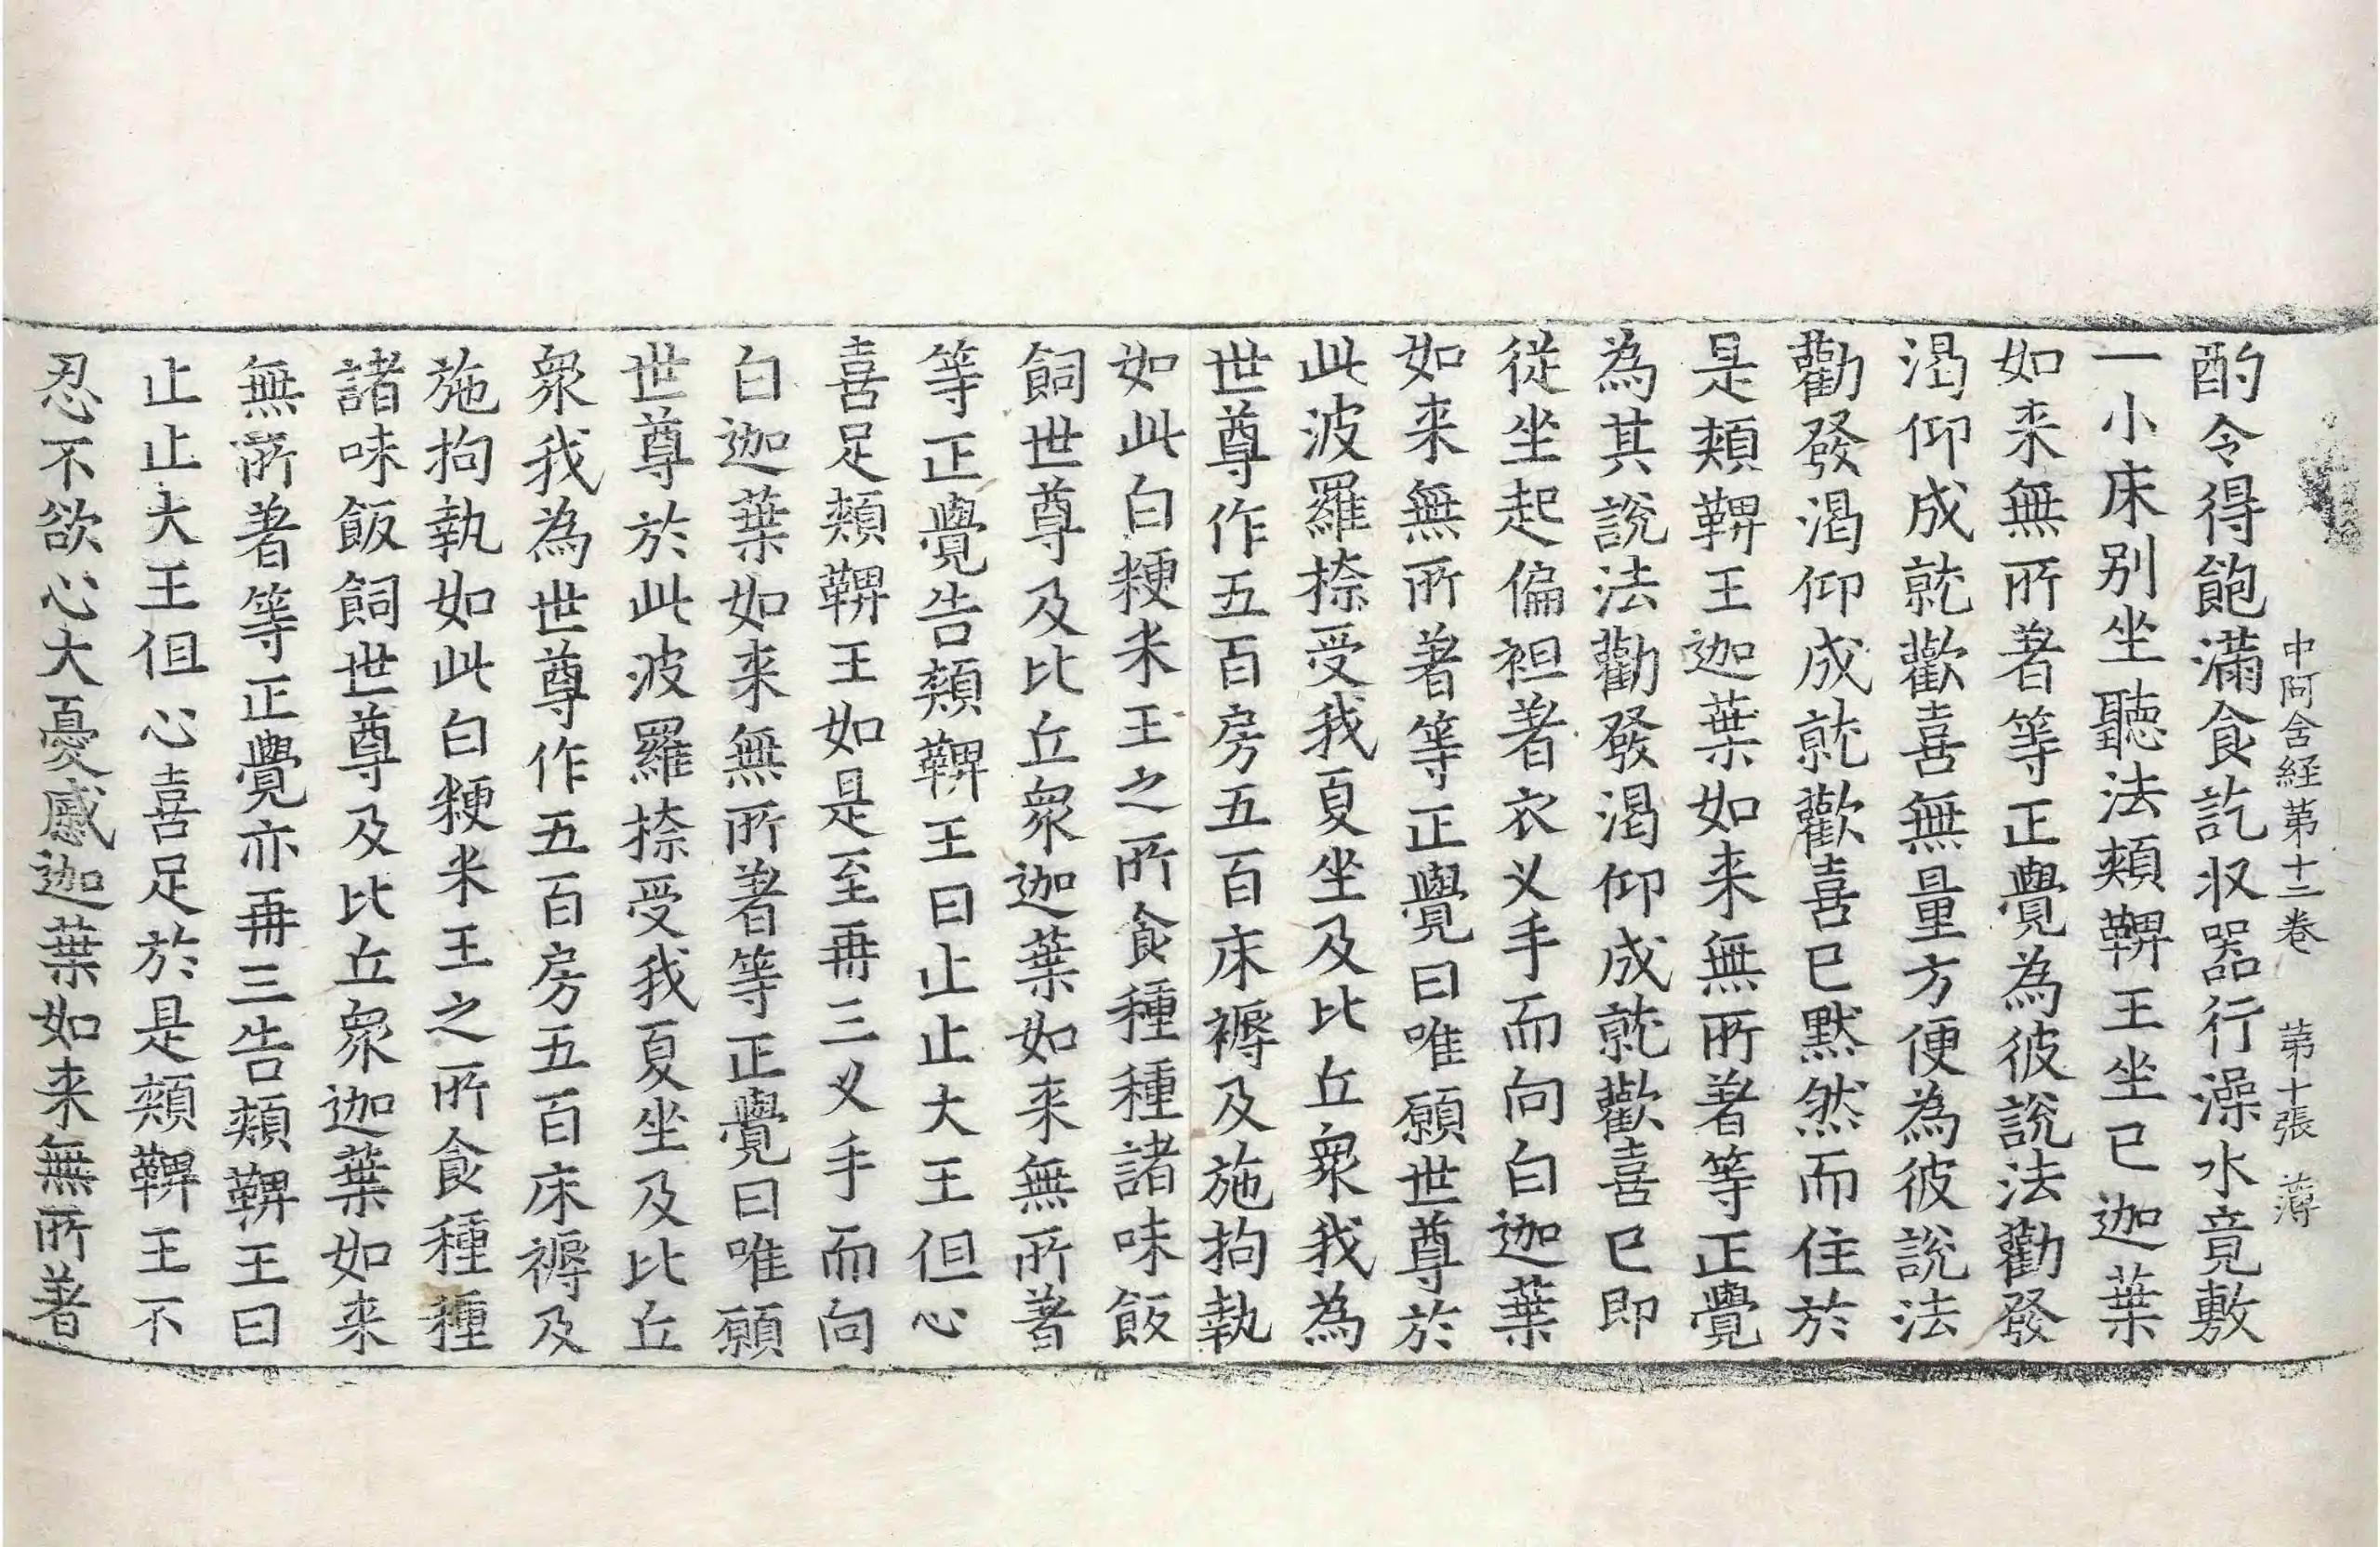 中阿含経第十二巻　第十張　薄
酌令得飽滿食訖収器行澡水竟敷
一小床別坐聽法頰鞞王坐已迦葉
如来無所著等正覺為彼說法勸發
渴仰成就歡喜無量方便為彼說法
勸發渴仰成就歡喜已默然而住於
是頰鞞王迦葉如来無所著等正覺
為其說法勸發渴仰成就歡喜已即
從坐起偏袒著衣叉手而向白迦葉
如来無所著等正覺曰唯願世尊於
此波羅捺受我夏坐及比丘衆我為
世尊作五百房五百床褥及施拘執
如此白粳米王之所食種種諸味飯
飼世尊及比丘衆迦葉如来無所著
等正覺告頰鞞王曰止止大王但心
喜足頰鞞王如是至再三叉手而向
白迦葉如来無所著等正覺曰唯願
世尊於此波羅捺受我夏坐及比丘
衆我為世尊作五百房五百床褥及
施拘執如此白粳米王之所食種種
諸味飯飼世尊及比丘衆迦葉如来
無所著等正覺亦再三告頰鞞王曰
止止大王但心喜足於是頰鞞王不
忍不欲心大憂慼迦葉如来無所著